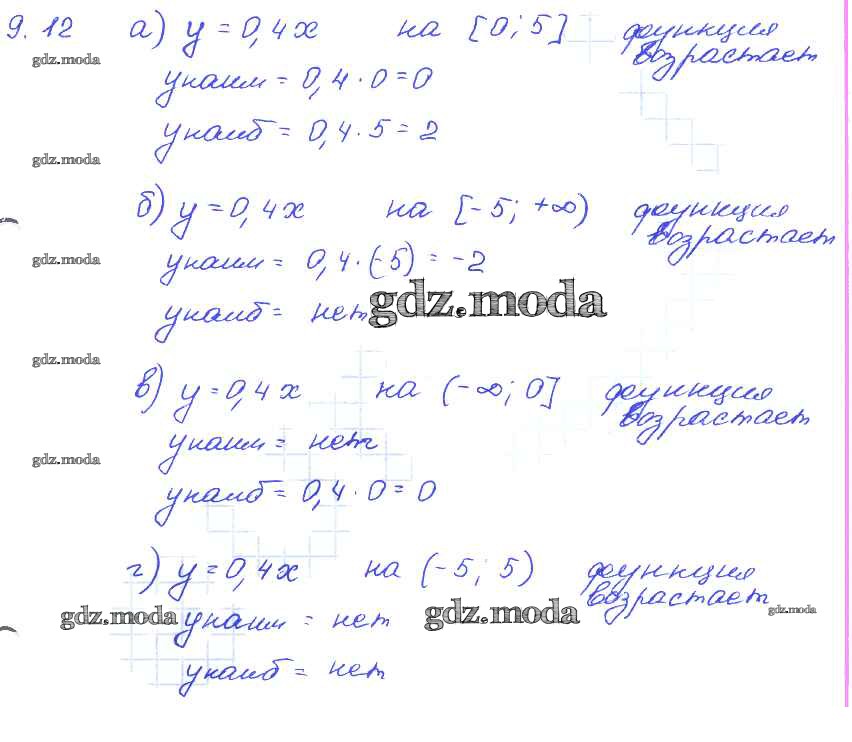 9.12 а) y = 0,4x на [0; 5] функция возрастает
gdz.moda
yнаим = 0,4 · 0 = 0
yнаиб = 0,4 · 5 = 2
gdz.moda
б) y = 0,4x на [-5; +∞) функция возрастает
gdz.moda
yнаим = 0,4 · (-5) = -2
yнаиб = нет
gdz.moda
gdz.moda
в) y = 0,4x на (-∞; 0] функция возрастает
yнаим = нет
gdz.moda
yнаиб = 0,4 · 0 = 0
г) y = 0,4x на (-5; 5) функция возрастает
gdz.moda yнаим = нет gdz.moda gdz.moda
yнаиб = нет